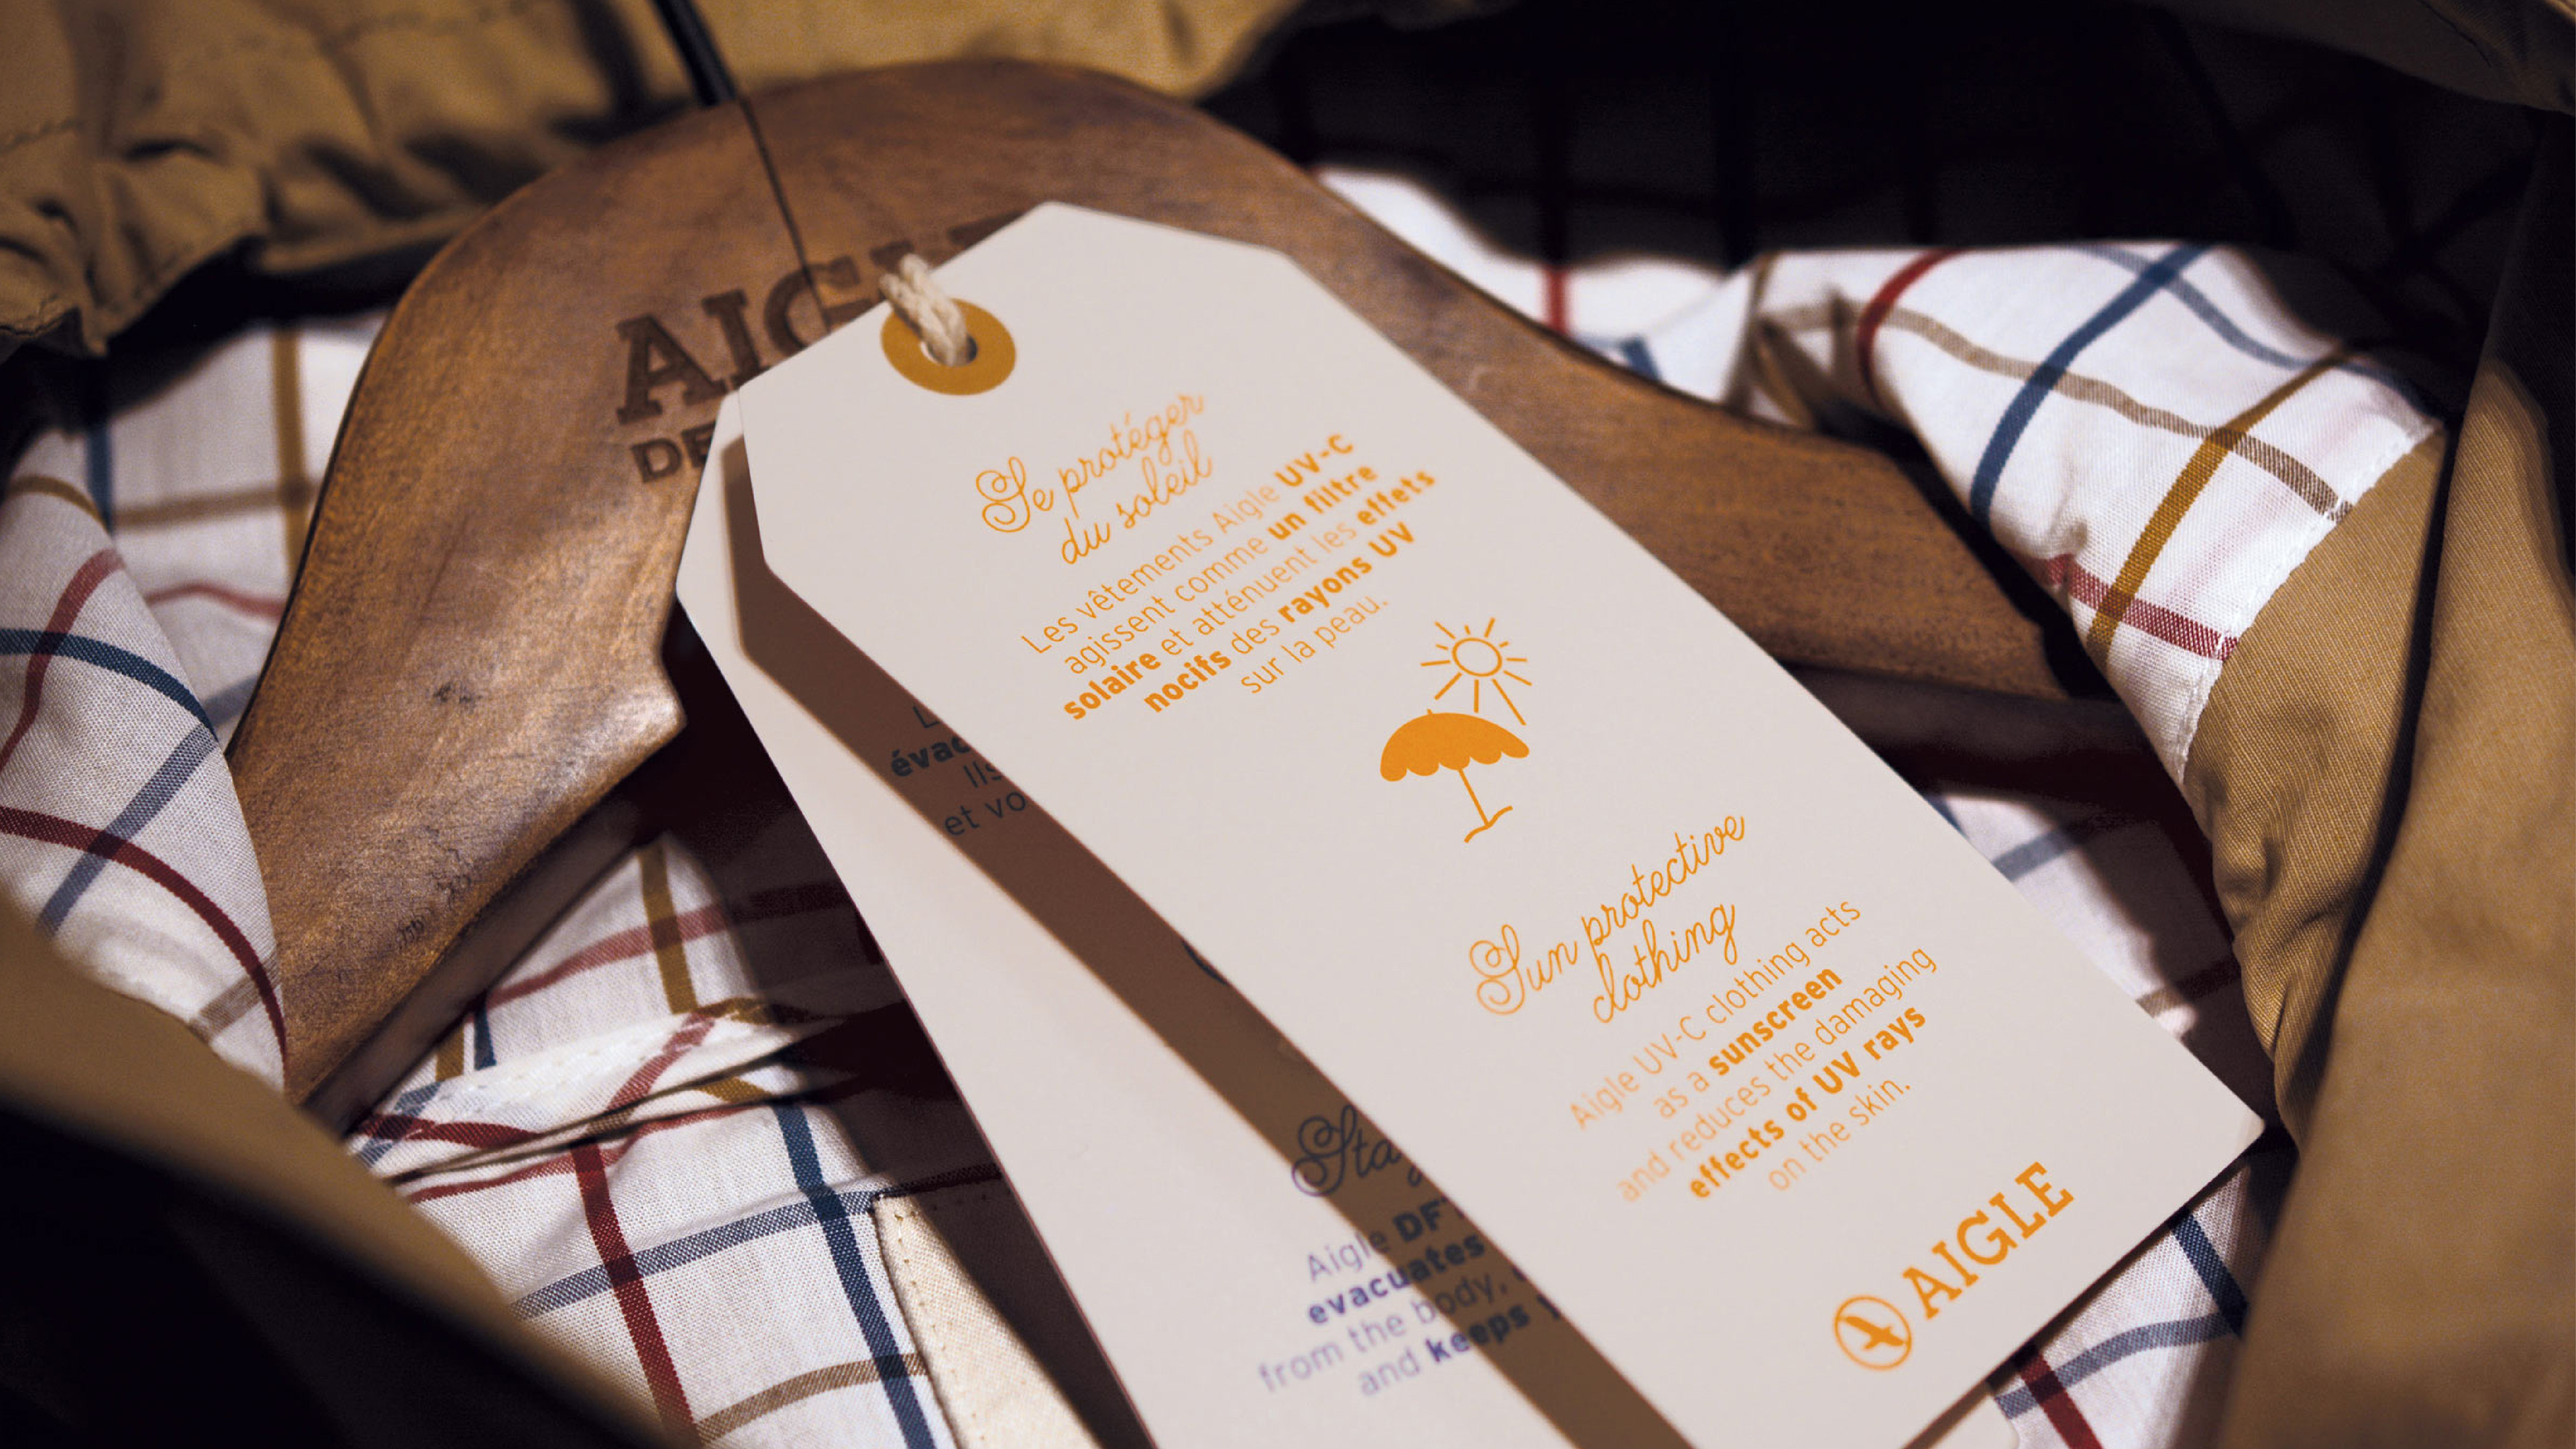 AIGL
DE
Se protéger
du soleil
Les vêtements Aigle UV-C
agissent comme un filtre
solaire et atténuent les effets
nocifs des rayons UV
sur la peau.
Sun protective
clothing
Aigle UV-C clothing acts
as a sunscreen
and reduces the damaging
effects of UV rays
on the skin.
AIGLE
L
évac
Ils
et vo
Stay
Aigle DF
evacuates
from the body,
and keeps